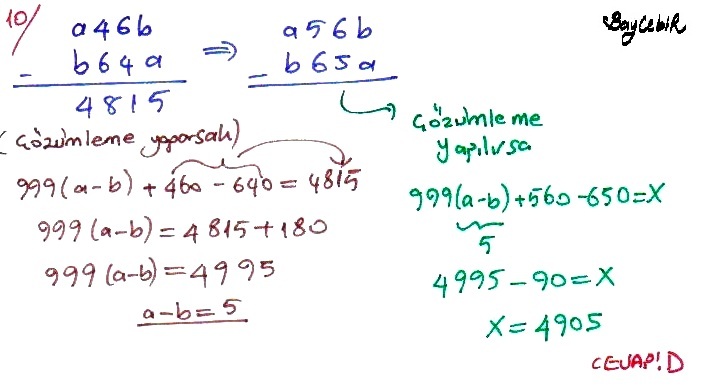 10/
a46b
- b64a
4815
⇒
a56b
- b65a
BayCebiR
(Çözümleme yaparsak)
999(a-b)+460-640=4815
999(a-b)=4815+180
999(a-b)=4995
a-b=5
Çözümleme
yapılırsa
999(a-b)+560-650=X
5
4995-90=X
X=4905
CEVAP!D